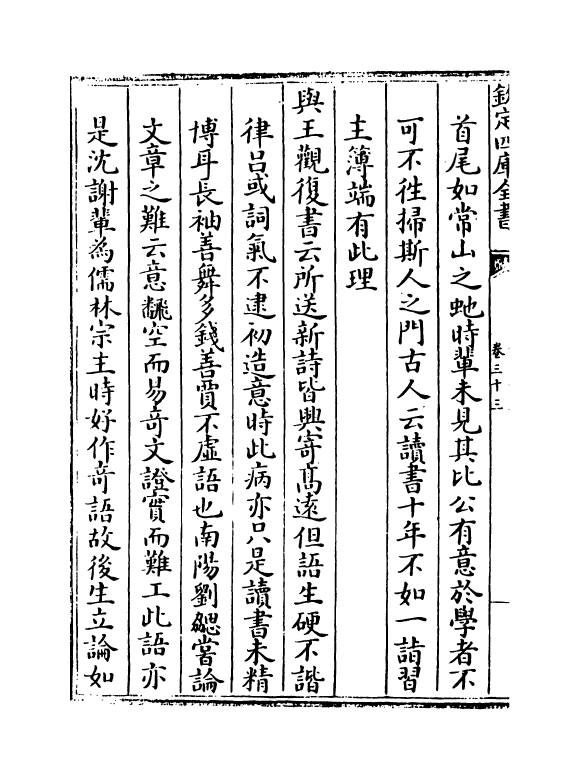 欽定四庫全書
卷三十三
首尾如常山之虵時輩未見其比公有意於學者不
可不徃掃斯人之門古人云讀書十年不如一詣習
主簿端有此理
與王觀復書云所送新詩皆興寄髙逺但語生硬不諧
律吕或詞氣不逮初造意時此病亦只是讀書未精
博耳長袖善舞多錢善賈不虚語也南陽劉勰嘗論
文章之難云意翻空而易竒文證實而難工此語亦
是沈謝輩為儒林宗主時好作竒語故後生立論如